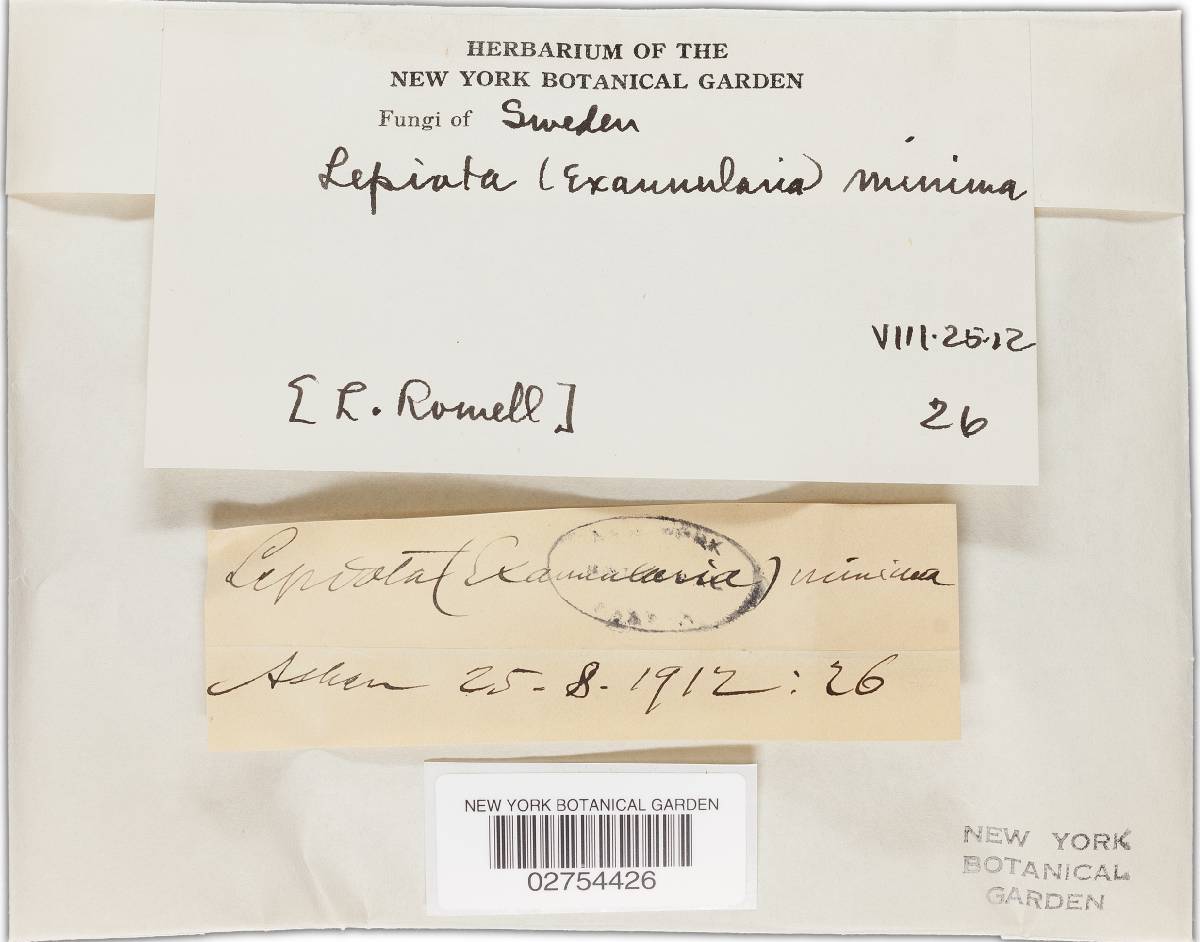 HERBARIUM OF THE
NEW YORK BOTANICAL GARDEN
Fungi of Sweden
Lepiota (Exannularia) minima
VIII.25.12
[L. Romell]
26
Lepiota (Exannularia) minima
NEW YORK
Asken 25-8-1912:26
NEW YORK BOTANICAL GARDEN
02754426
NEW YORK
BOTANICAL
GARDEN